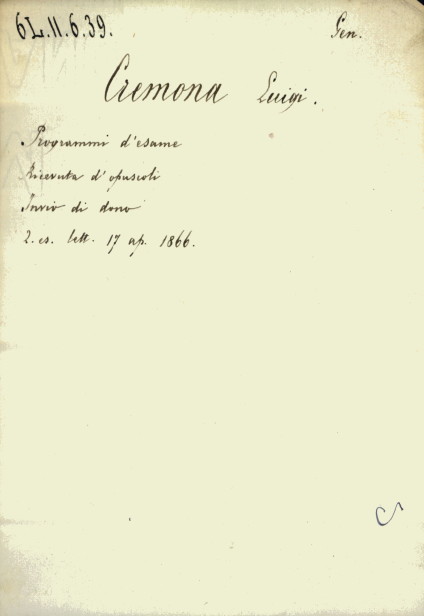 6L.11.6.39.
Gen.
Cremona Luigi.
Programmi d'esame
Ricevuta d'opuscoli
Invio di dono
2. es. lett. 17 ap. 1866.